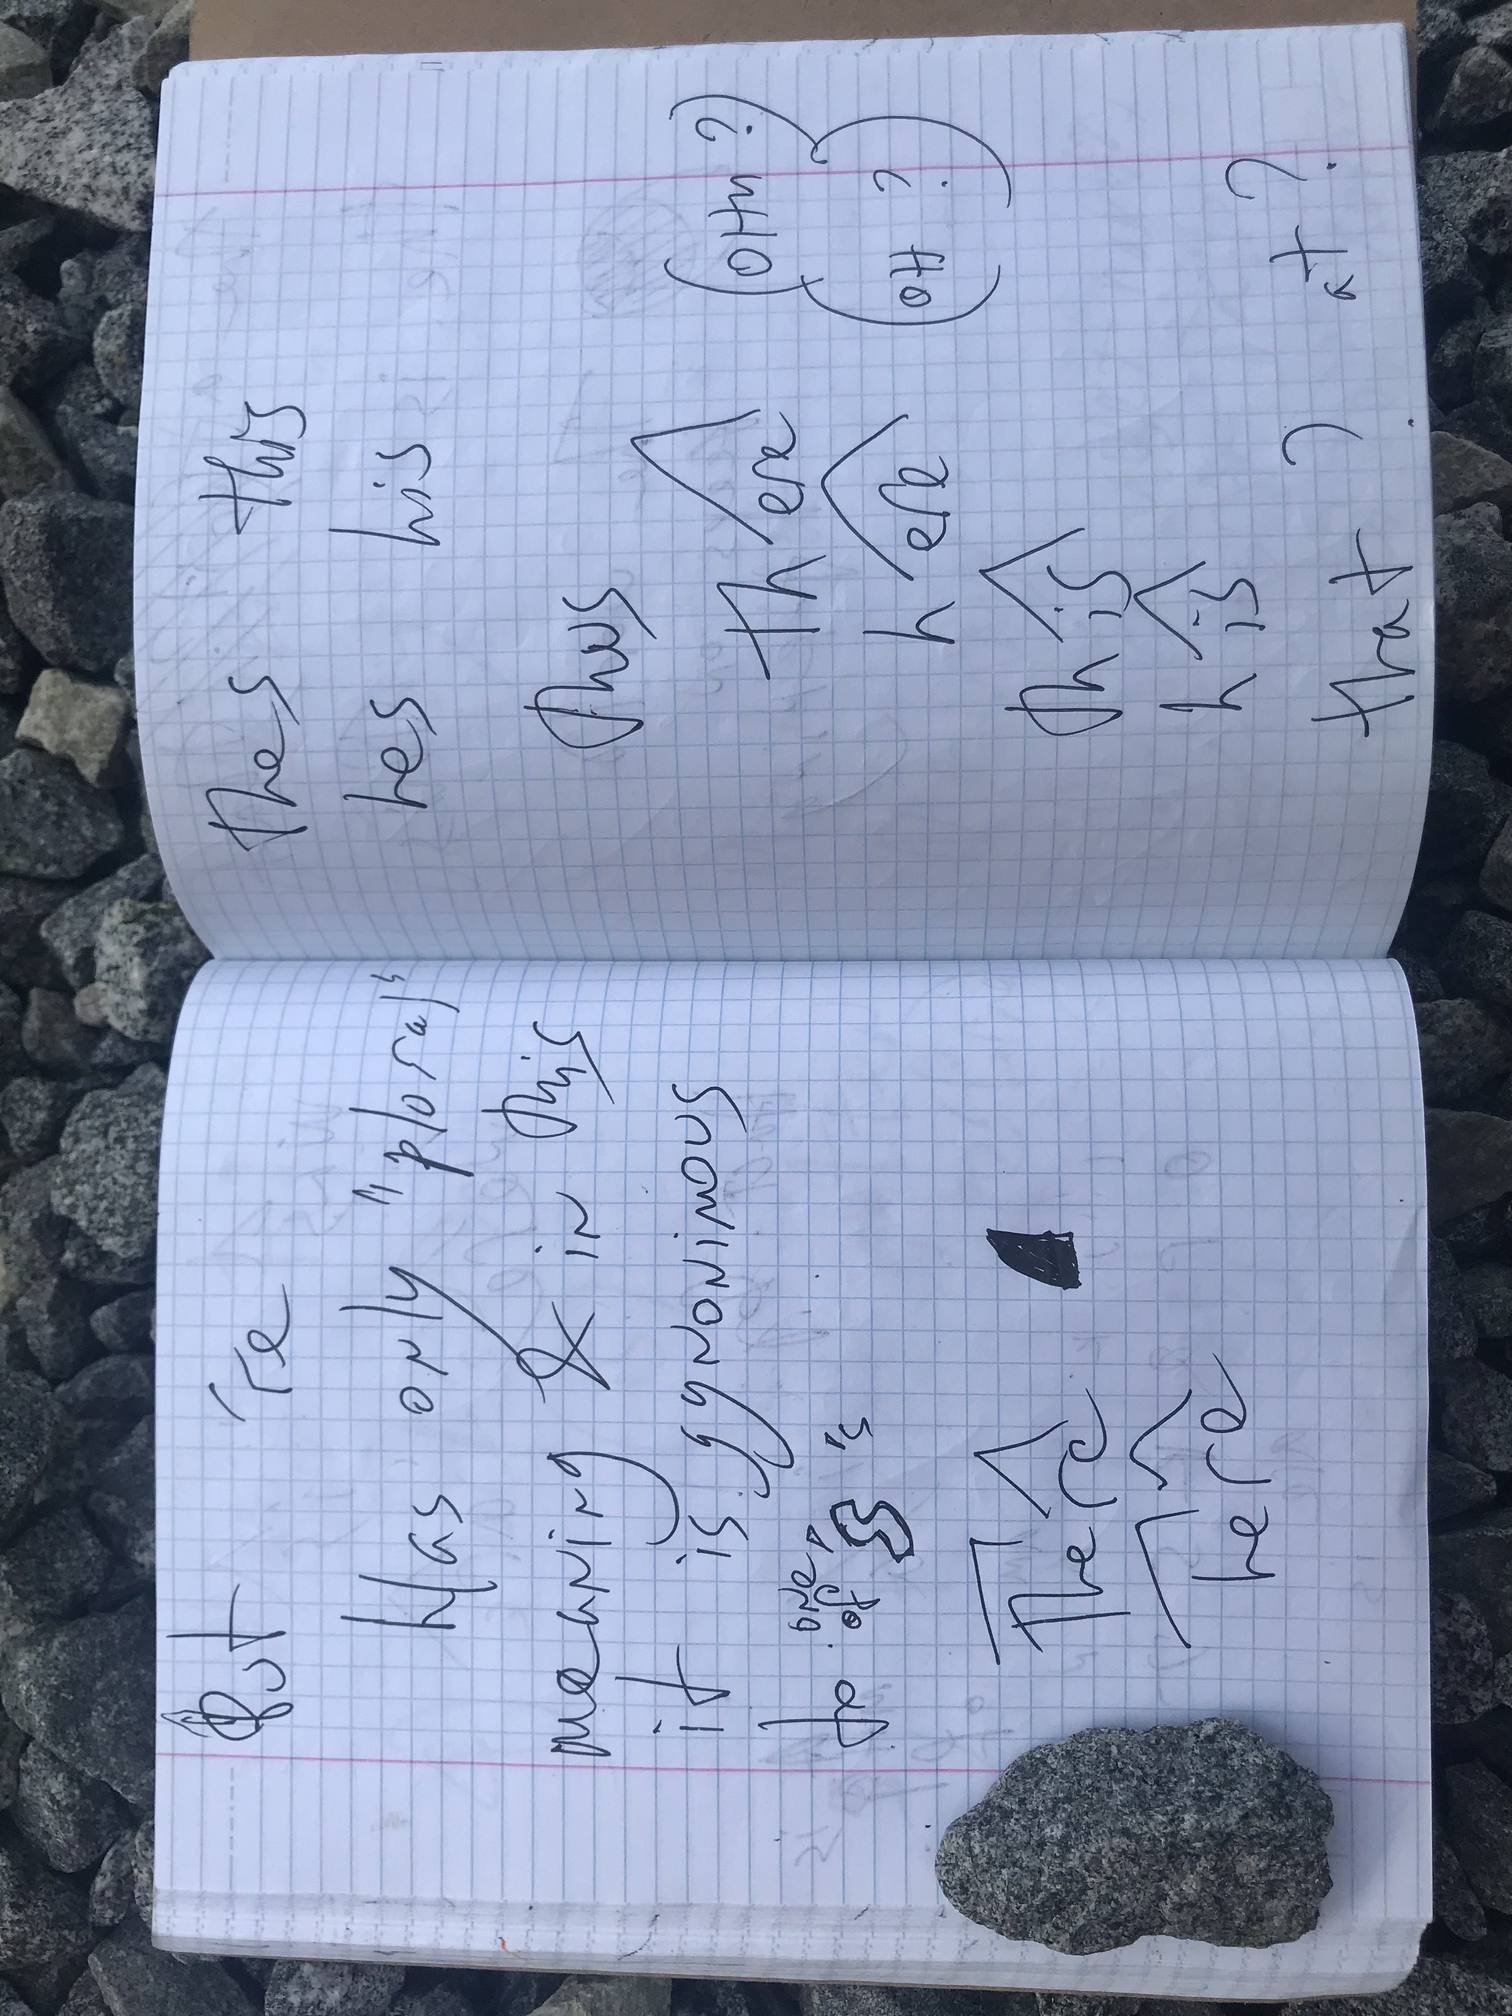 But Te
Has only "ploral"
meaning & in this
it is synonimous
to one of S's
There
here
thes this
hes his
thus
th ere (они?)
h ere (но ?)
th is
h is
that ? ?